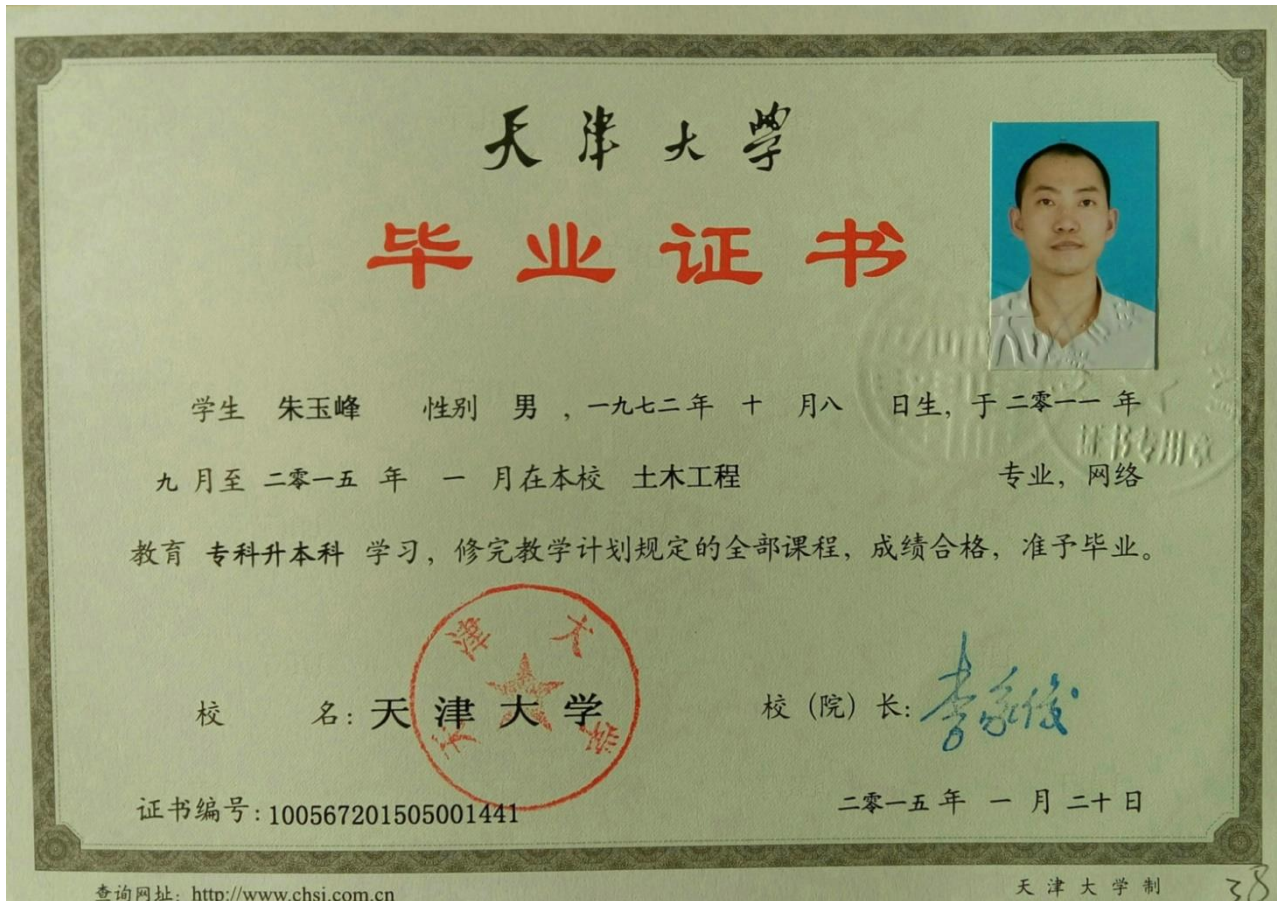 天津大学
毕业证书
学生 朱玉峰 性别 男 ，一九七二年 十 月八 日生，于二零一一 年
九 月至 二零一五 年 一 月在本校 土木工程 专业，网络
教育 专科升本科 学习，修完教学计划规定的全部课程，成绩合格，准予毕业。
天津大学
校 名：天津大学
校（院）长：李家俊
证书编号：100567201505001441
二零一五年 一 月二十日
证书专用章
查询网址：http://www.chsi.com.cn
天津大学制
38